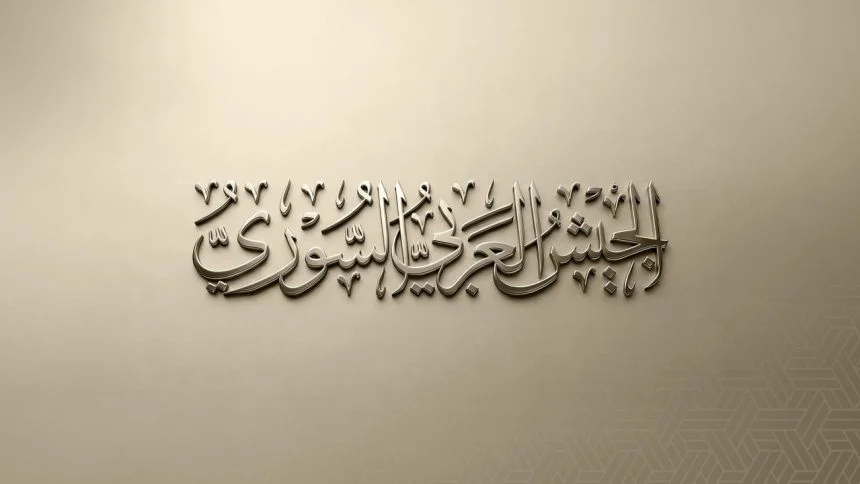 الجَيْشُ العَرَبيُّ السُّوْرِيُّ